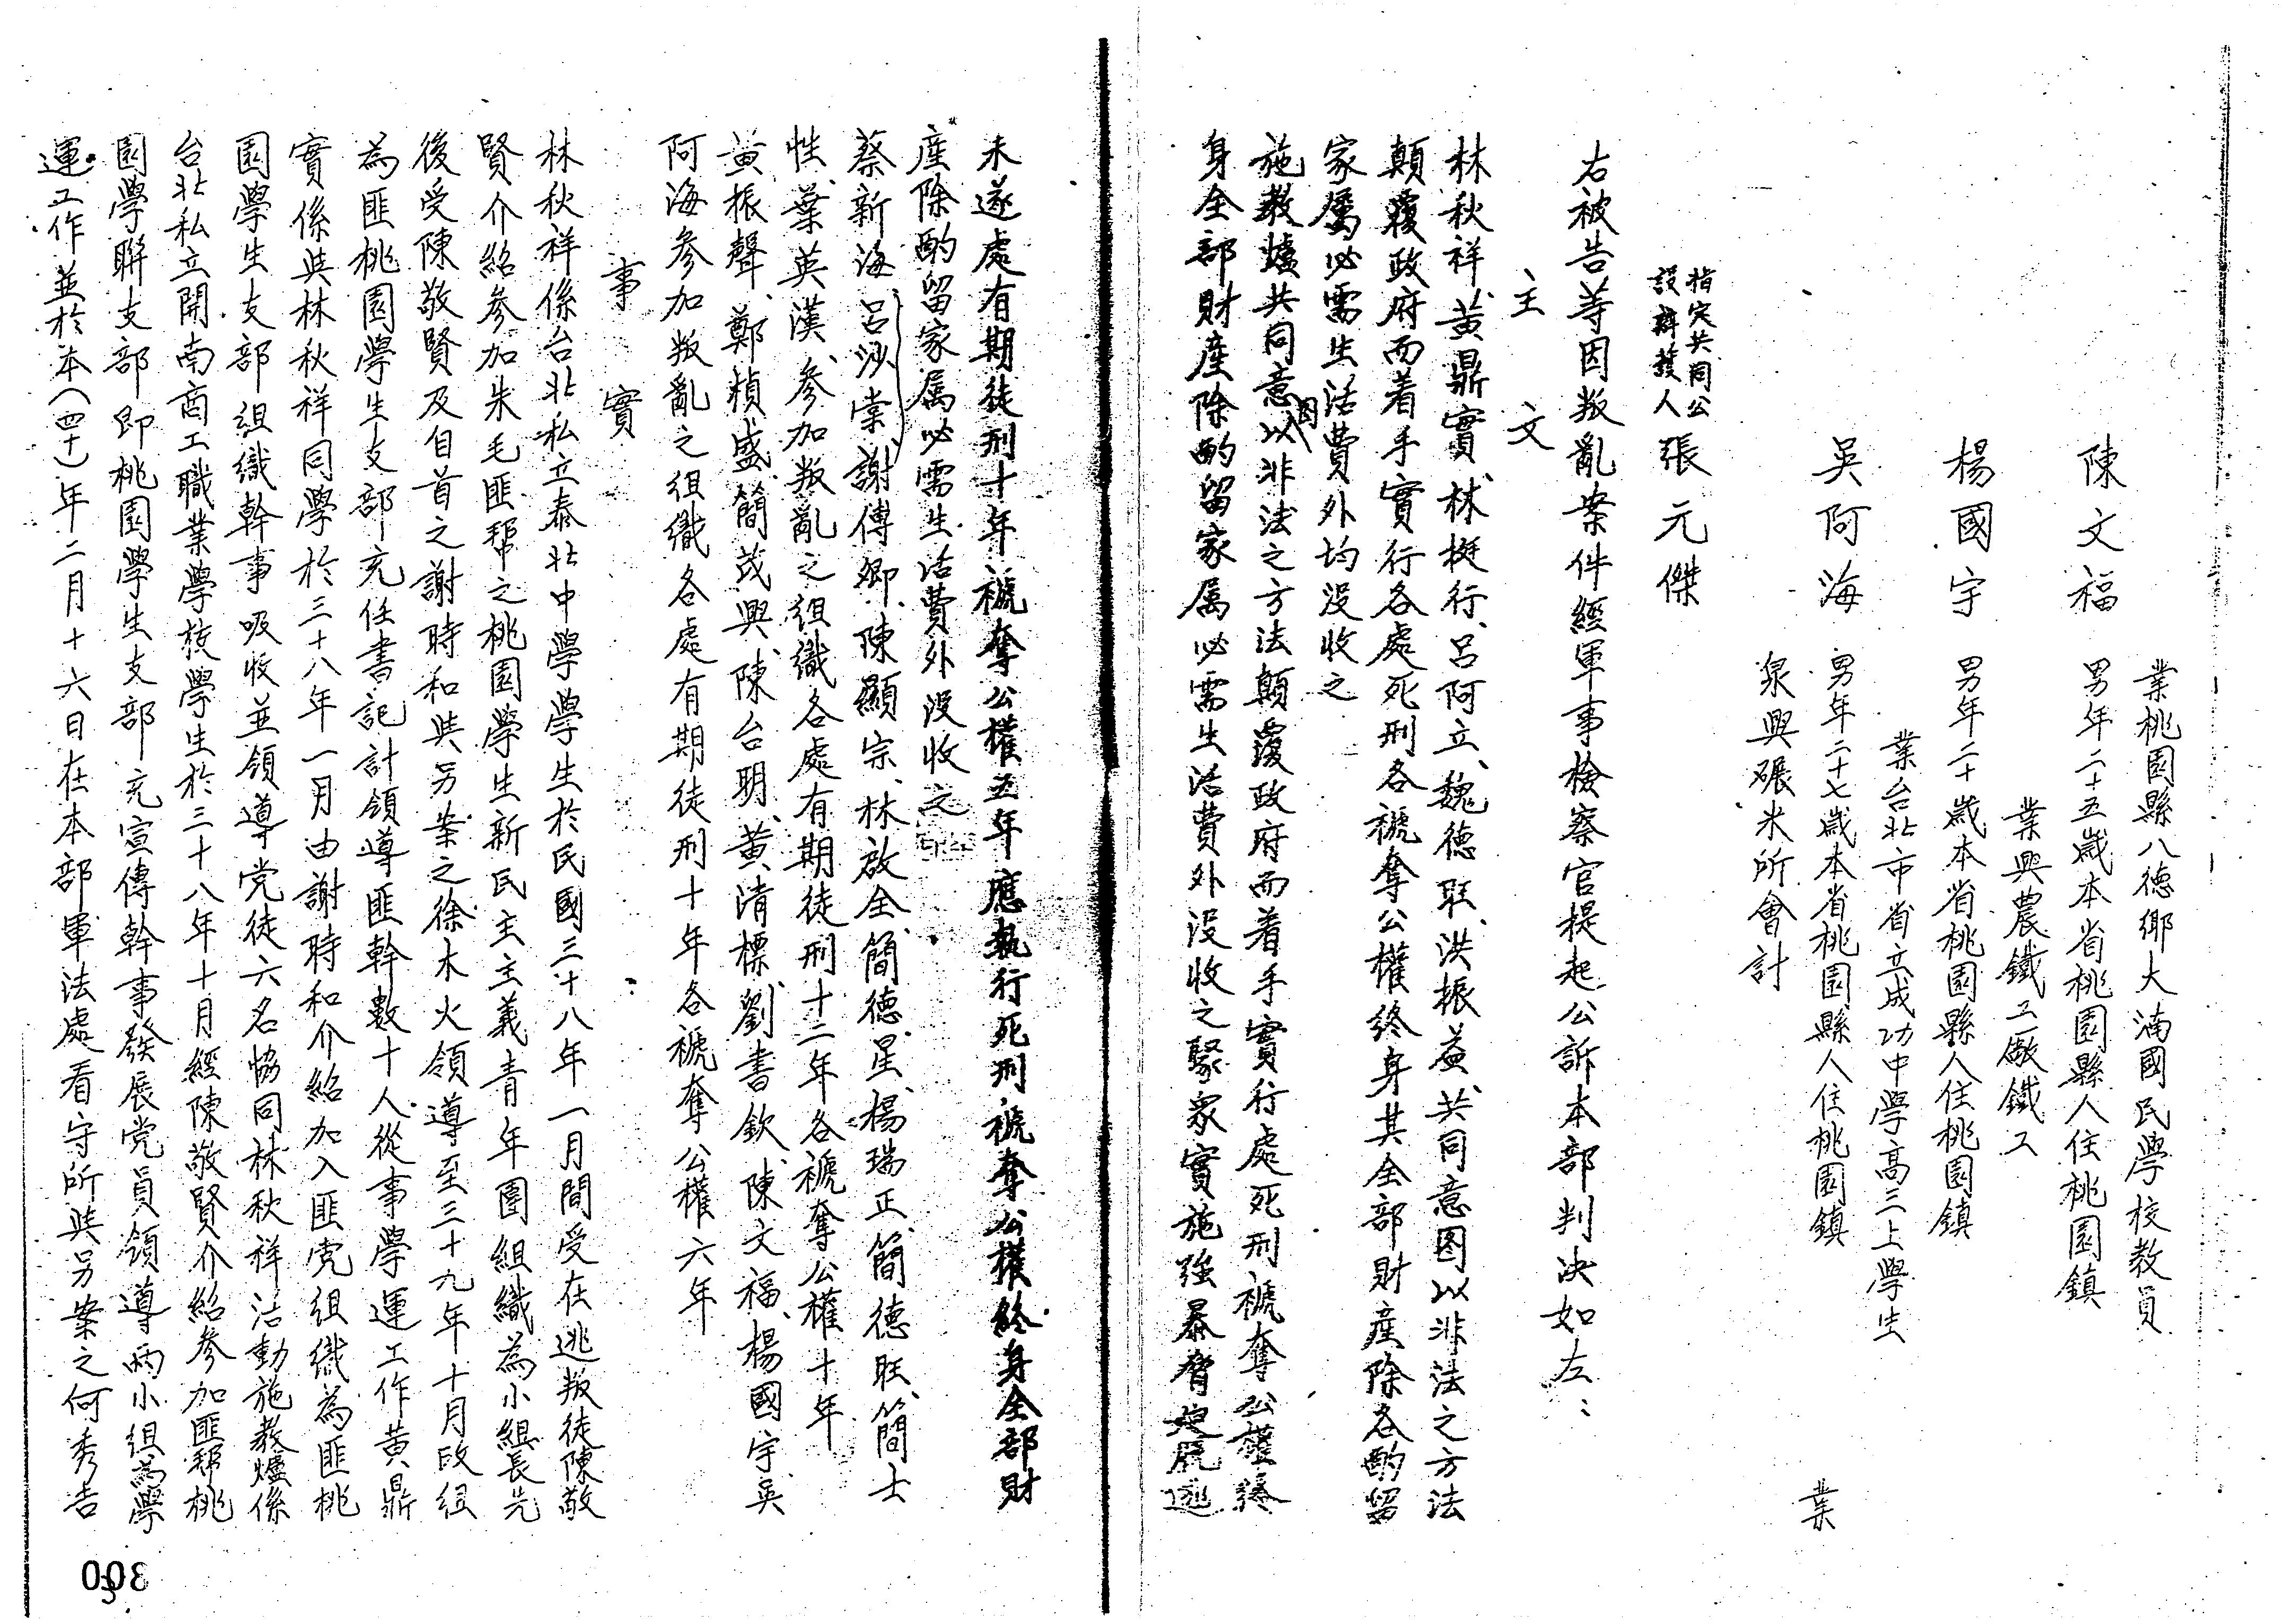 業桃園縣八德鄉大湳國民學校教員
陳文福　男年二十五歲本省桃園縣人住桃園鎮
業興農鐵工廠鐵工
楊國宇　男年二十歲本省桃園縣人住桃園鎮
業台北市省立成功中學高三上學生
吳阿海　男年二十七歲本省桃園縣人住桃園鎮　業
泉興碾米所會計
指定共同公
設辯護人　張元傑
右被告等因叛亂案件經軍事檢察官提起公訴本部判決如左：
主文
林秋祥、黃鼎實、林挺行、呂阿立、魏德旺、洪振益、共同意图以非法之方法
顛覆政府而着手實行各處死刑各褫奪公權終身其全部財產除各酌留
家屬必需生活費外均沒收之
施教爐共同意图以非法之方法顛覆政府而着手實行處死刑褫奪公權終
身全部財產除酌留家属必需生活費外沒收之聚衆實施強暴脅迫脫逃
未遂處有期徒刑十年褫奪公權五年應執行死刑褫奪公權終身全部財
產除酌留家属必需生活費外沒收之
蔡新海、呂沙棠、謝傳卿、陳顯宗、林啟全、簡德星、楊瑞正、簡德旺、簡士
性、葉英漢、參加叛亂之組織各處有期徒刑十二年各褫奪公權十年
黃振聲、鄭楨盛、簡茂興、陳台明、黃清標、劉書欽、陳文福、楊國宇吳
阿海參加叛亂之組織各處有期徒刑十年各褫奪公權六年
事實
林秋祥係台北私立泰北中學學生於民國三十八年一月間受在逃叛徒陳敬
賢介紹參加朱毛匪幫之桃園學生新民主主義青年團組織為小組長先
後受陳敬賢及自首之謝時和與另案之徐木火領導至三十九年十月改組
為匪桃園學生支部充任書記計領導匪幹數十人從事學運工作黃鼎
實係與林秋祥同學於三十八年一月由謝時和介紹加入匪党組織為匪桃
園學生支部組織幹事吸收並領導党徒六名協同林秋祥活動施教爐係
台北私立開南商工職業學校學生於三十八年十月經陳敬賢介紹參加匪幫桃
園學聯支部即桃園學生支部充宣傳幹事發展党員領導兩小組為學
運工作並於本（四十）年二月十六日在本部軍法處看守所與另案之何秀吉